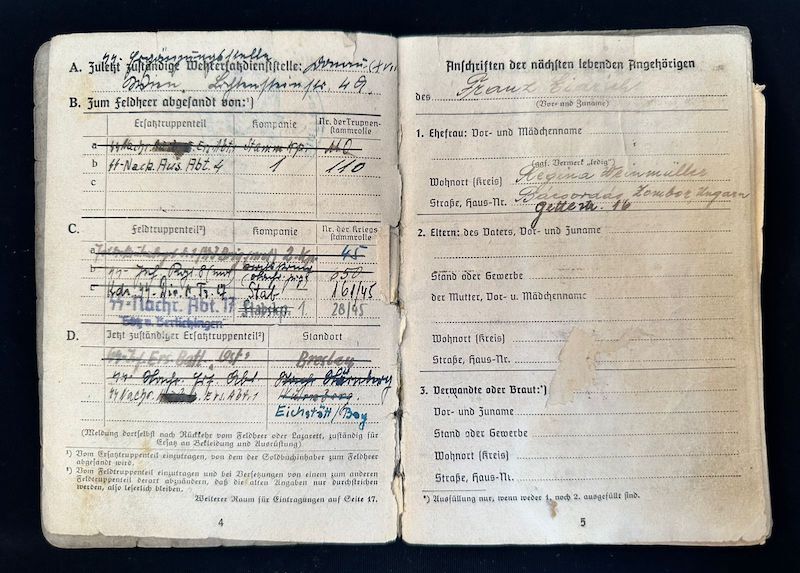 SS-Ergänzungsstelle
A. Zuletzt zuständige Wehrersatzdienststelle: Donau (XVII)
Wien, Lichtensteinstr. 49.
B. Zum Feldheer abgesandt von:¹)
Ersatztruppenteil Kompanie Nr. der Truppenstammrolle
a SS-Nachr. Ers. Abt. Stamm Kp. 110
b SS-Nach. Aus. Abt. 4 1 110
c
C. Feldtruppenteil²) Kompanie Nr. der Kriegsstammrolle
a 2. Kp. 45
b SS- 650
c Kdr. SS-Div. Stab 161/45
SS-Nachr. Abt. 17 Stabskp. 1. 28/45
Götz v. Berlichingen
D. Jetzt zuständiger Ersatztruppenteil²) Standort
SS- Ers. Batl. „Ost“ Breslau
SS Nachr. Abt. Nürnberg
SS Nachr. Ers. Abt. 1 Nürnberg
Eichstätt/Bay
(Meldung dortselbst nach Rückkehr vom Feldheer oder Lazarett, zuständig für
Ersatz an Bekleidung und Ausrüstung)
¹) Vom Ersatztruppenteil einzutragen, von dem der Soldbuchinhaber zum Feldheer
abgesandt wird.
²) Vom Feldtruppenteil einzutragen und bei Versetzungen von einem zum anderen
Feldtruppenteil derart abzuändern, daß die alten Angaben nur durchstrichen
werden, also leserlich bleiben.
Weiterer Raum für Eintragungen auf Seite 17.
4
Anschriften der nächsten lebenden Angehörigen
des Franz
(Vor- und Zuname)
1. Ehefrau: Vor- und Mädchenname
(ggf. Vermerk „ledig“)
Regina Weinmüller
Wohnort (Kreis) Bacsordas Zombor Ungarn
Straße, Haus-Nr. 16
2. Eltern: des Vaters, Vor- und Zuname
Stand oder Gewerbe
der Mutter, Vor- u. Mädchenname
Wohnort (Kreis)
Straße, Haus-Nr.
3. Verwandte oder Braut:*)
Vor- und Zuname
Stand oder Gewerbe
Wohnort (Kreis)
Straße, Haus-Nr.
*) Ausfüllung nur, wenn weder 1. noch 2. ausgefüllt sind.
5